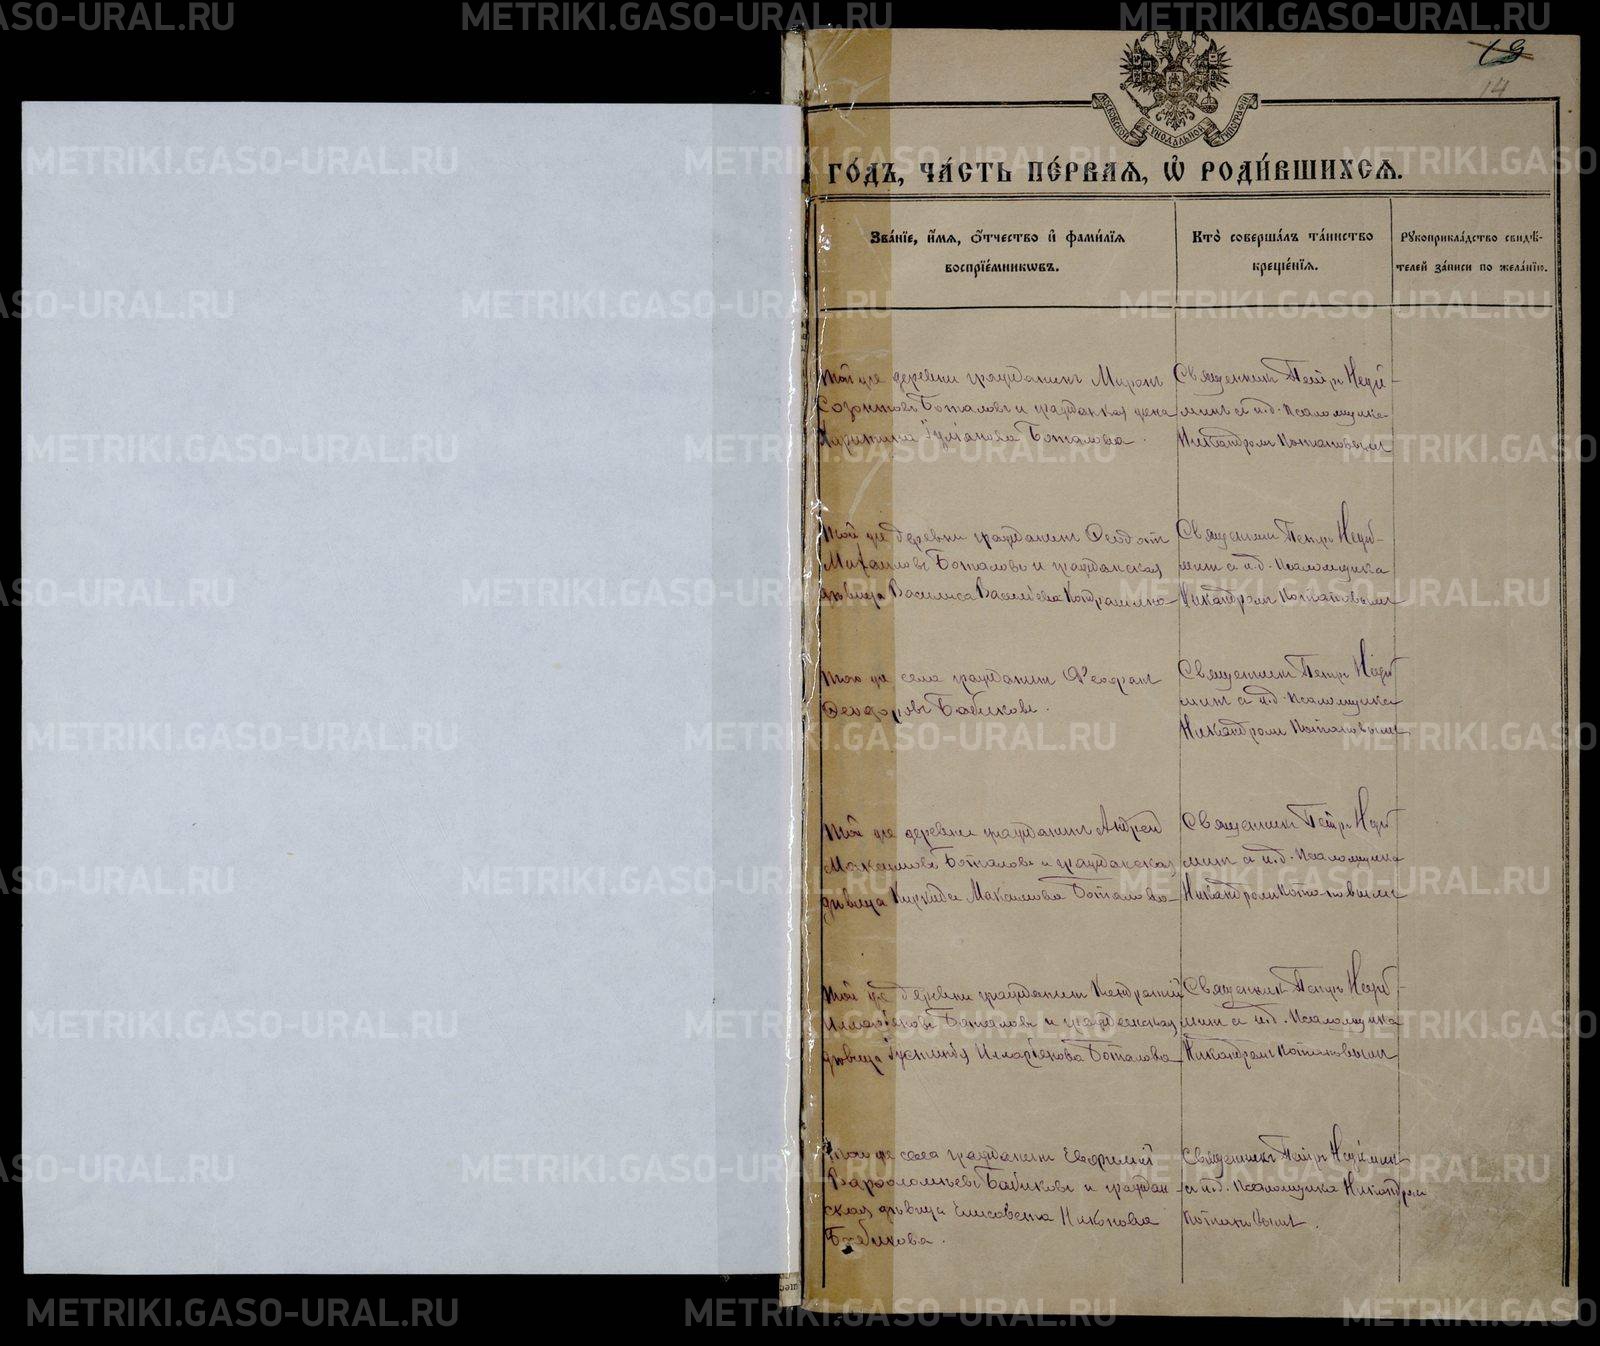 19
14
МОСКОВСКОЙ СѴНОДАЛЬНОЙ ТИПОГРАФІИ
ГО́ДЪ, ЧА́СТЬ ПЕ́РВАѦ, Ѡ҆ РОДИ́ВШИХСѦ.
Зва́нїе, и҆́мѧ, ѻ҆́тчество и҆ фами́лїѧ
воспрїе́мникѡвъ.
Кто̀ соверша́лъ та́инство
креще́нїѧ.
Рꙋкоприкла́дство свидѣ́-
телей за́писи по жела́нїю.
Той же деревни гражданинъ Миронъ
Созонтовъ Боталовъ и гражданская жена
Харитина Іуліанова Боталова.
Священникъ Петръ Неуй-
минъ с и.д. псаломщика
Никандромъ Потаповымъ
Той же деревни гражданинъ Ѳеодотъ
Михаиловъ Боталовъ и гражданская
дѣвица Василиса Васильева
Священникъ Петръ Неуй-
минъ с и.д. псаломщика
Никандромъ Потаповымъ
Того же села гражданинъ Ѳеофанъ
Ѳеодоровъ Бабиковъ.
Священникъ Петръ Неуй
минъ с и.д. псаломщика
Никандромъ Потаповымъ
Той же деревни гражданинъ Андрей
Максимовъ Боталовъ и гражданская
дѣвица Максимова Боталова
Священникъ Петръ Неуй
минъ с и.д. псаломщика
Никандромъ Потаповымъ
Той же деревни гражданинъ Кондратій
Иларіоновъ Боталовъ и гражданская
дѣвица Іустинія Иларіонова Боталова
Священникъ Петръ Неуй-
минъ с и.д. псаломщика
Никандромъ Потаповымъ
Того же села гражданинъ Евфимій
Варфоломѣевъ Бабиковъ и граждан
ская дѣвица Елисавета Никонова
Бабикова.
Священникъ Петръ Неуйминъ
с и.д. псаломщика Никандром
Потаповымъ.
METRIKI.GASO-URAL.RU